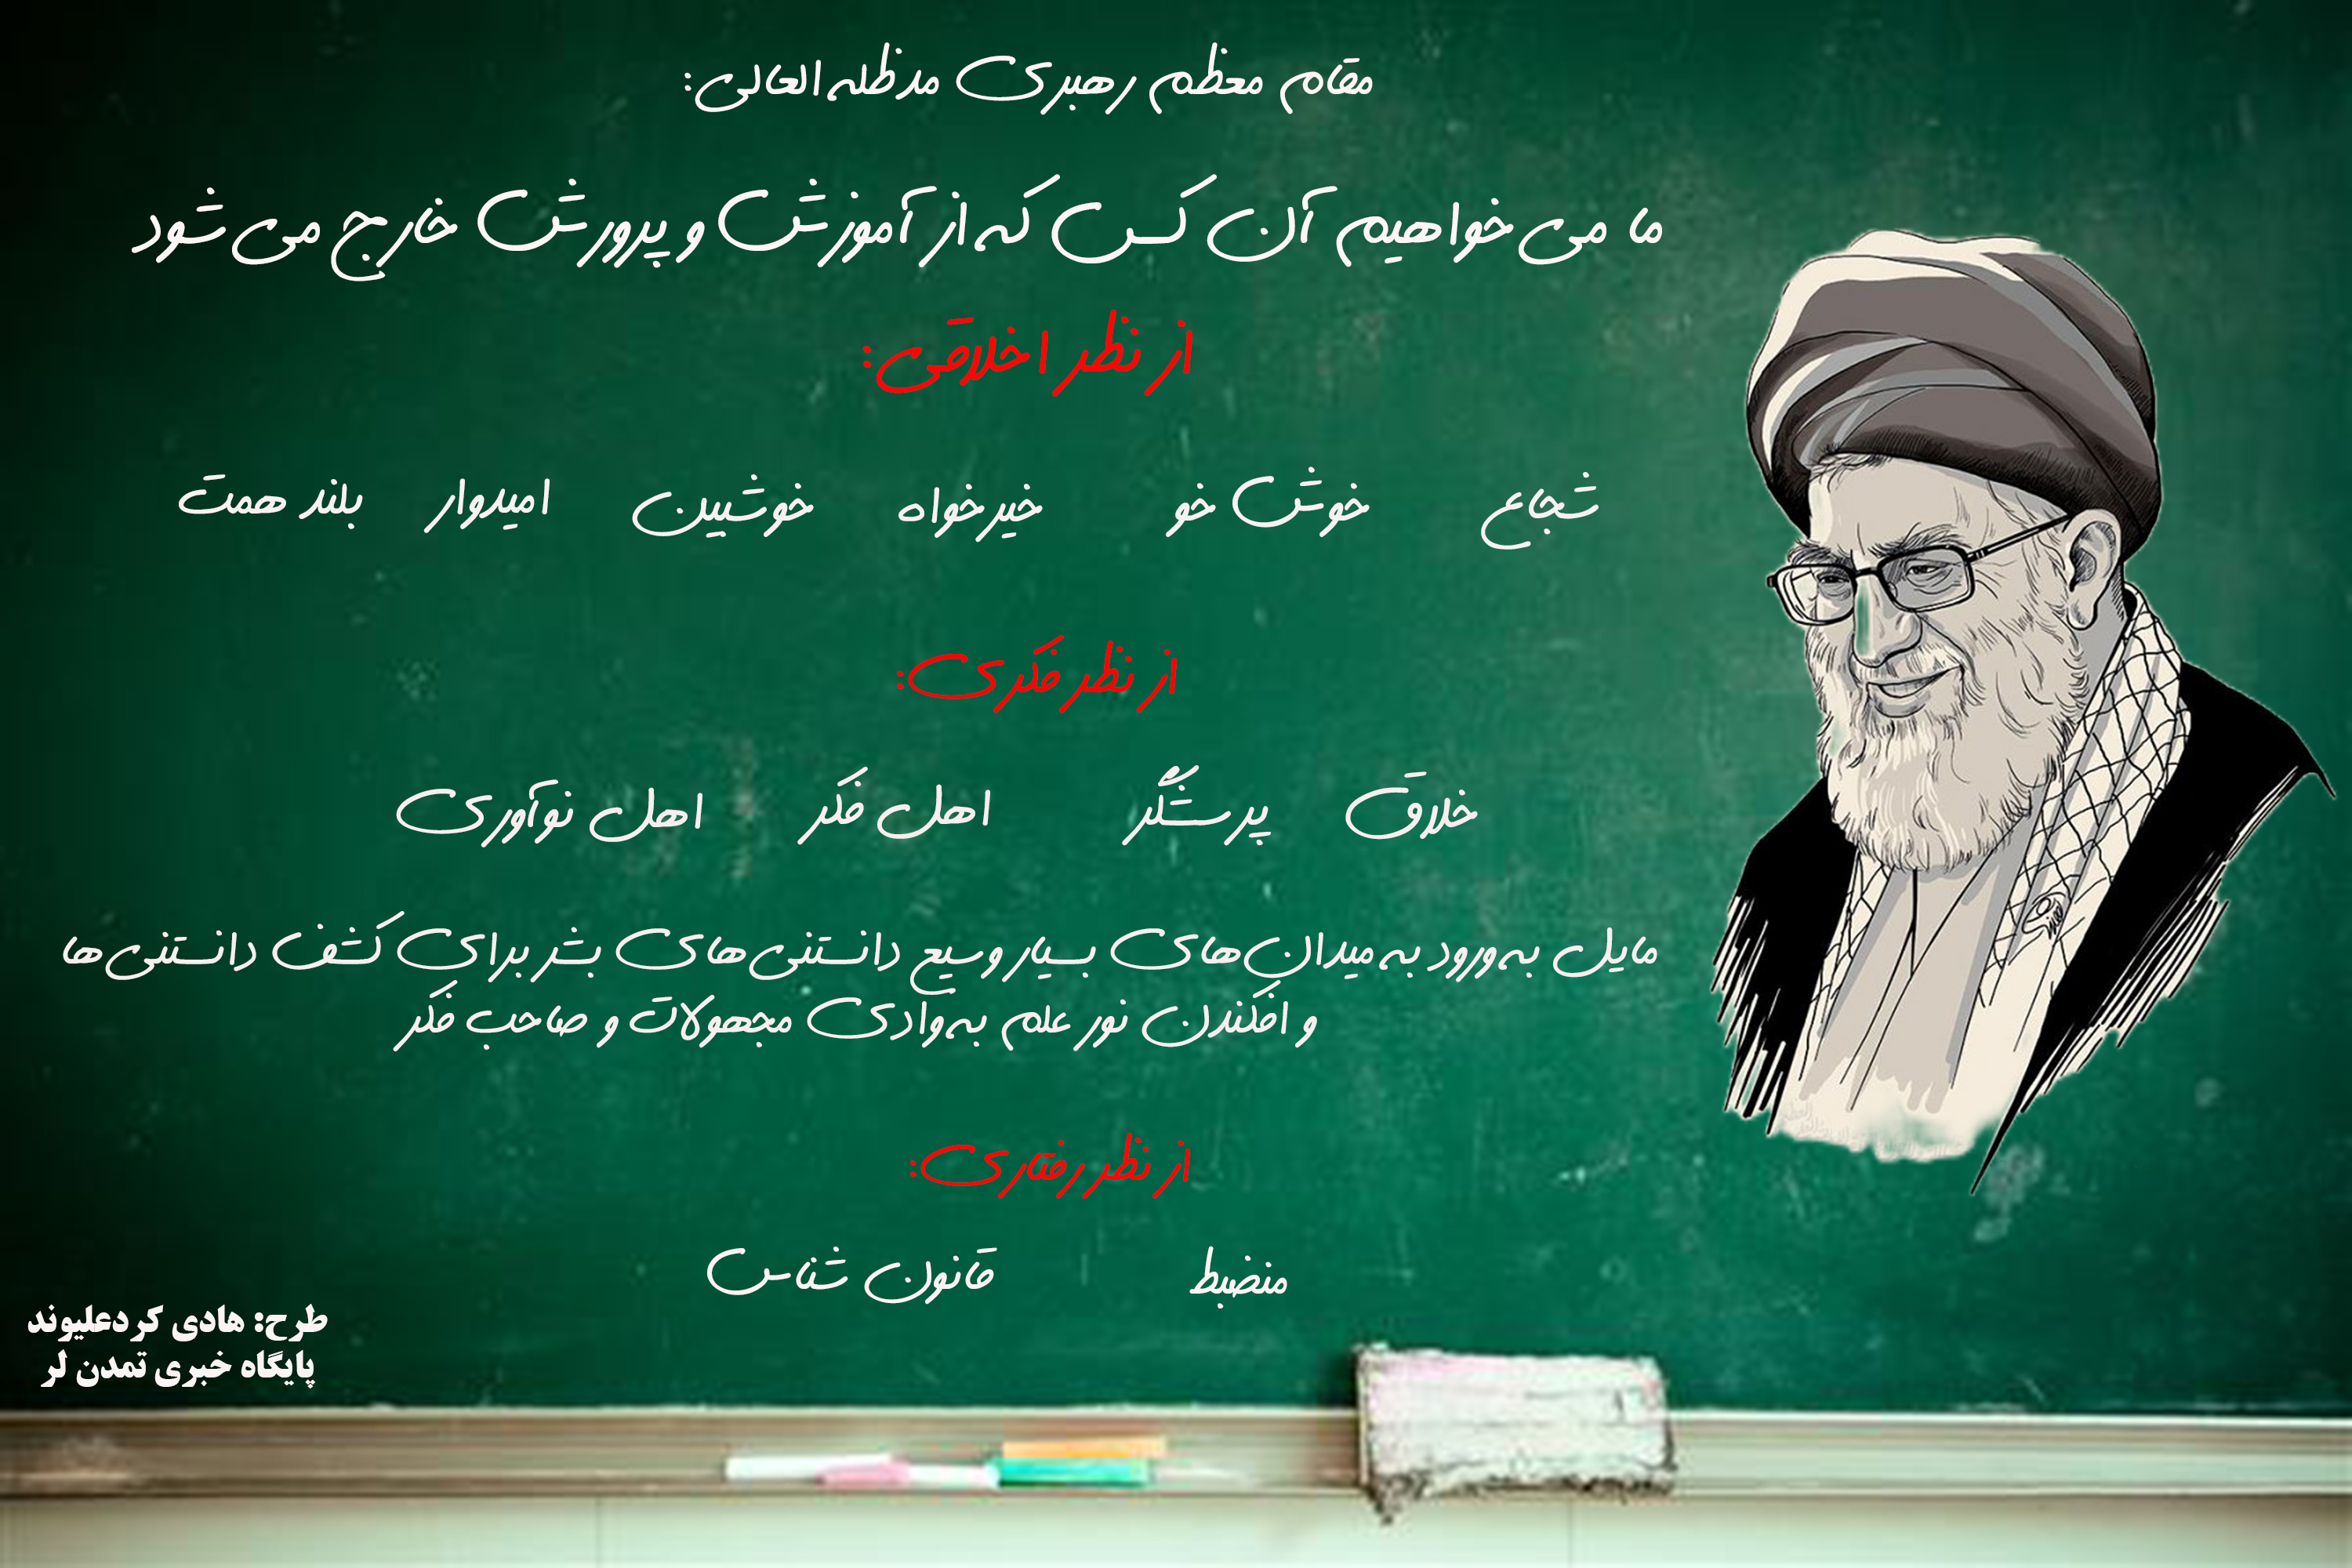 مقام معظم رهبری مدظله العالی:
ما می خواهیم آن کس که از آموزش و پرورش خارج می شود
از نظر اخلاقی:
شجاع خوش خو خیرخواه خوشبین امیدوار بلند همت
از نظر فکری:
خلاق پرسشگر اهل فکر اهل نوآوری
مایل به ورود به میدان های بسیار وسیع دانستنی های بشر برای کشف دانستنی ها
و افکندن نور علم به وادی مجهولات و صاحب فکر
از نظر رفتاری:
منضبط قانون شناس
طرح: هادی کردعلیوند
پایگاه خبری تمدن لر